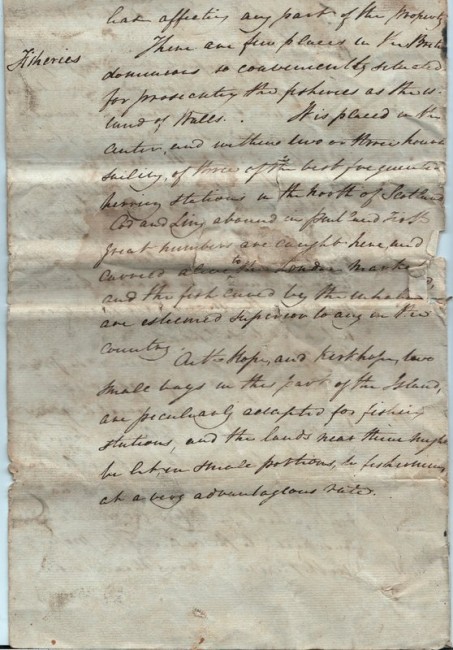 has affecting any part of the Property
Fisheries
There are few places in the British
dominions so conveniently situated
for prosecuting the fisheries as the is-
land of Walls. It is placed in the
center, and within two or three hours
sailing, of three of the best frequented
herring stations in the north of Scotland
Cod and Ling abound in and
great numbers are caught here, and
carried alive to the London market
and the fish cured by the
are esteemed superior to any in the
country.
Hope, and Kirkhope, two
small bays in this part of the Island,
are peculiarly adapted for fishing
stations, and the lands near them might
be let, in small portions, to fishermen
at a very advantageous rate.